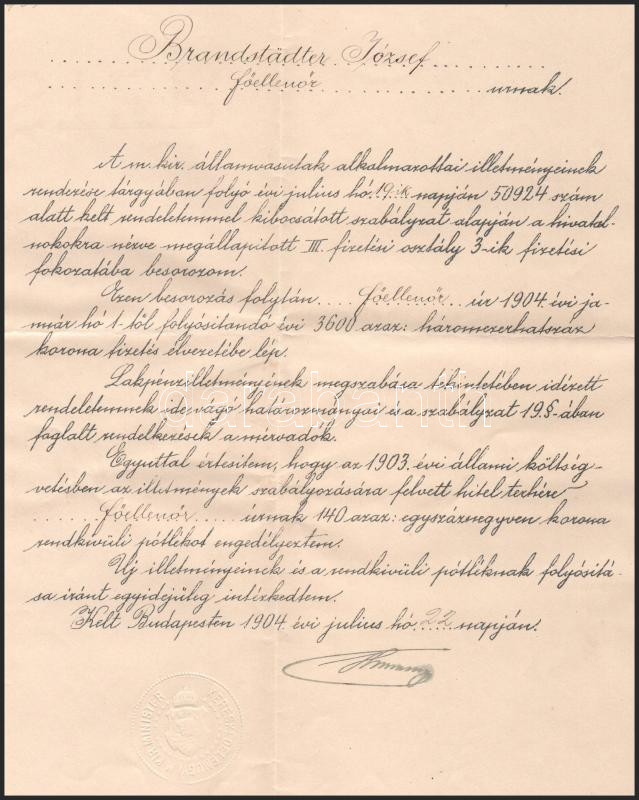 Brandstädter József
főellenőr urnak.
A m. kir. államvasutak alkalmazottai illetményeinek
rendezése tárgyában folyó évi julius hó 19.ik napján 50924 szám
alatt kelt rendeletemmel kibocsátott szabályzat alapján a hivatal-
nokokra nézve megállapitott III. fizetési osztály 3-ik fizetési
fokozatába besorozom.
Ezen besorozás folytán főellenőr úr 1904. évi ja-
nuár hó 1-től folyósitandó évi 3600 azaz: háromezerhatszáz
korona fizetés élvezetébe lép.
Lakpénzilletményének megszabása tekintetében idézett
rendeletemnek idevágó határozmányai és a szabályzat 19.§-ában
foglalt rendelkezések a mérvadók.
Egyuttal értesitem, hogy az 1903. évi állami költség-
vetésben az illetmények szabályozására felvett hitel terhére
főellenőr úrnak 140 azaz: egyszáznegyven korona
rendkivüli pótlékot engedélyeztem.
Uj illetményeinek és a rendkivüli pótléknak folyósitá-
sa iránt egyidejüleg intézkedtem.
Kelt Budapesten 1904. évi julius hó 22 napján.
darabanth